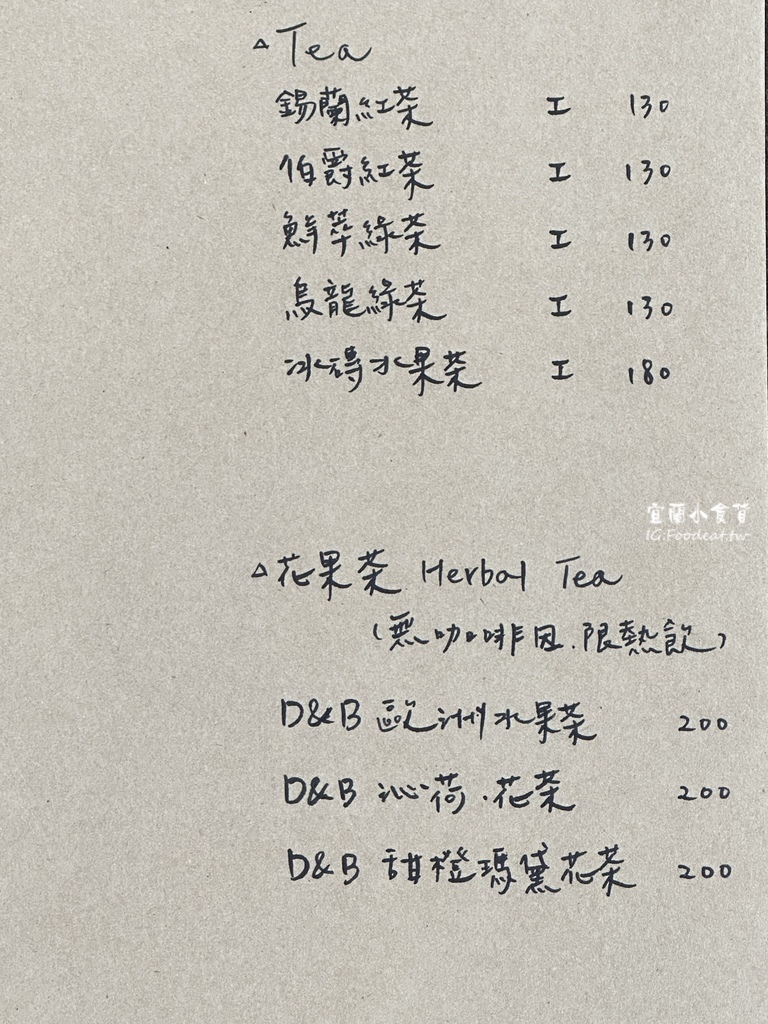 △ Tea
錫蘭紅茶 I 130
伯爵紅茶 I 130
鮮萃綠茶 I 130
烏龍綠茶 I 130
冰磚水果茶 I 180
宜蘭小食苜
IG:Foodeat.tw
△ 花果茶 Herbal Tea
(無咖啡因.限熱飲)
D&B 歐洲水果茶 200
D&B 沁荷.花茶 200
D&B 甜橙瑪黛花茶 200